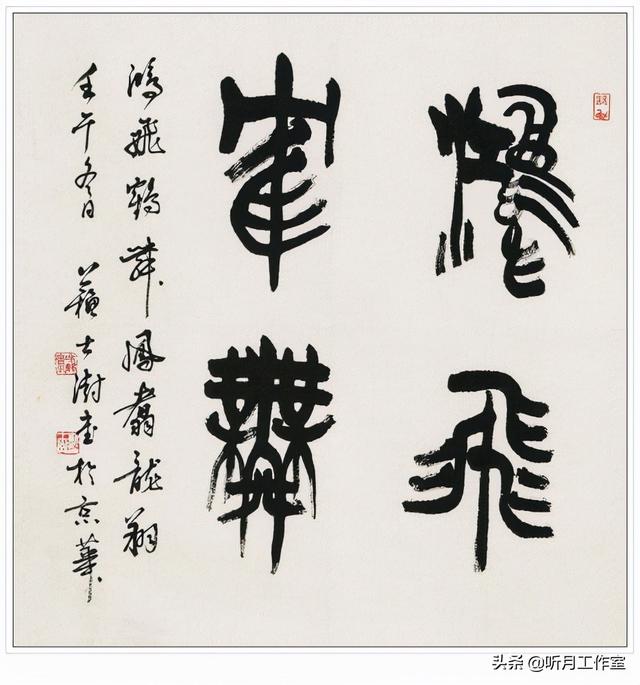 鴻飛
隺舞
鴻飛鶴舞鳳翥龍翔
壬午冬日 蘇士澍書於京華
头条 @听月工作室